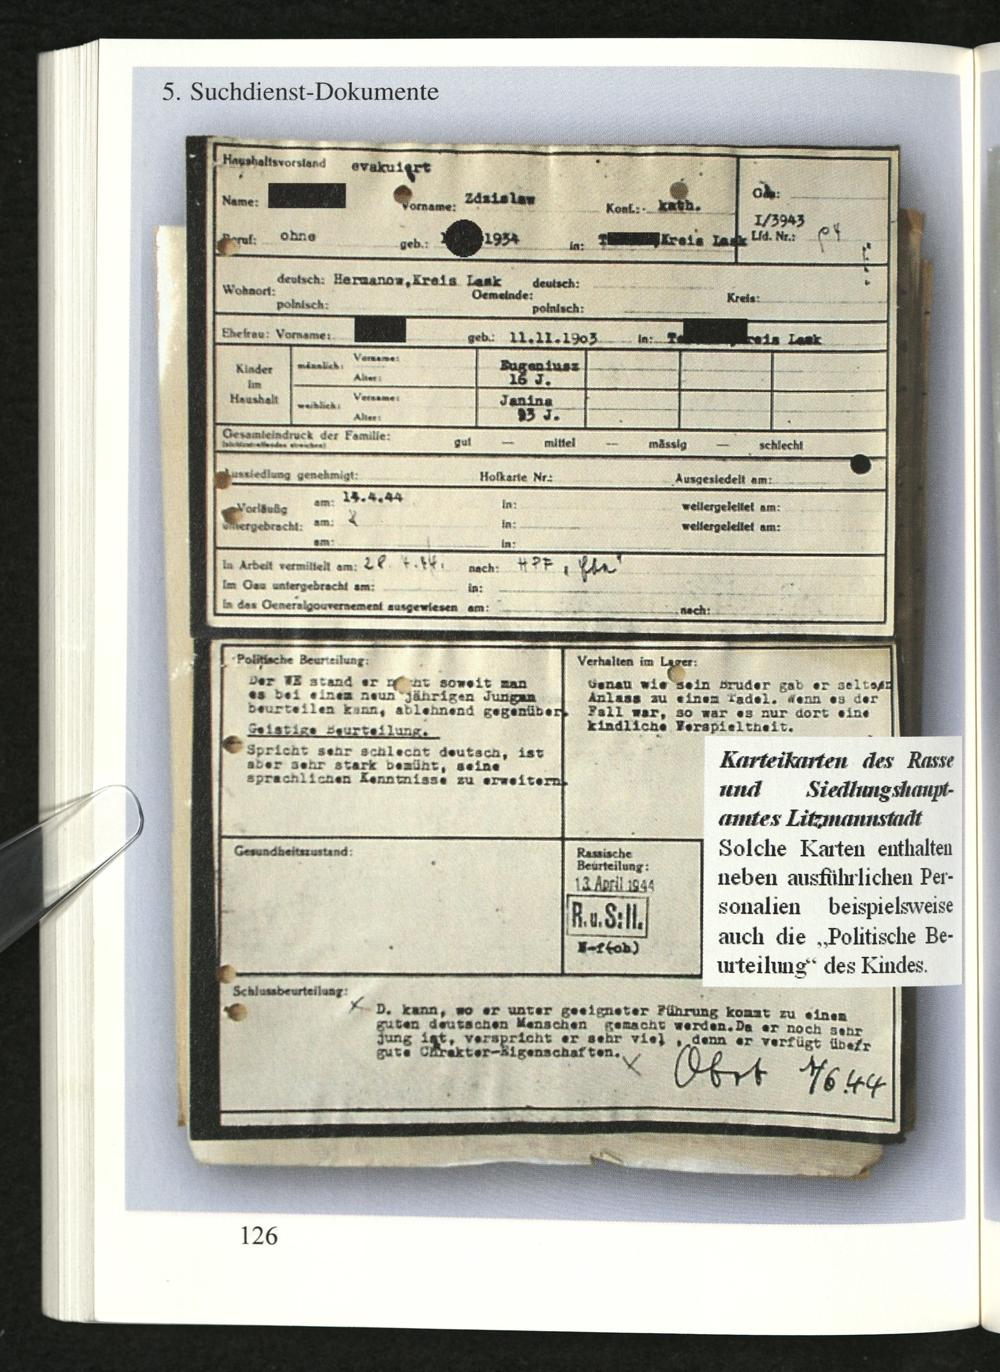 5. Suchdienst-Dokumente
Haushaltsvorstand evakuiert
Name: Vorname: Zdzislaw Konf.: kath. Gau:
I/3943
Beruf: ohne geb.: 1934 in: Kreis Lask Lfd. Nr.:
Wohnort: deutsch: Hermanow,Kreis Lask deutsch:
Gemeinde: Kreis:
polnisch: polnisch:
Ehefrau: Vorname: geb.: 11.11.19o3 in: Kreis Lask
Kinder im Haushalt
männlich: Vorname: Eugeniusz
Alter: 16 J.
weiblich: Vorname: Janina
Alter: J.
Gesamteindruck der Familie: gut — mittel — mässig — schlecht
(nichtzutreffendes streichen)
Aussiedlung genehmigt: Hofkarte Nr.: Ausgesiedelt am:
Vorläufig untergebracht:
am: 14.4.44 in: weitergeleitet am:
am: in: weitergeleitet am:
am: in:
In Arbeit vermittelt am: 28. 4.44. nach: HPF
Im Gau untergebracht am: in:
In das Generalgouvernement ausgewiesen am: nach:
Politische Beurteilung:
Der WE stand er nicht soweit man
es bei einem neun jährigen Jungen
beurteilen kann, ablehnend gegenüber.
Geistige Beurteilung.
Spricht sehr schlecht deutsch, ist
aber sehr stark bemüht, seine
sprachlichen Kenntnisse zu erweitern.
Verhalten im Lager:
Genau wie sein Bruder gab er selten
Anlass zu einem Tadel. Wenn es der
Fall war, so war es nur dort eine
kindliche Verspieltheit.
Karteikarten des Rasse
und Siedlungshaupt-
amtes Litzmannstadt
Solche Karten enthalten
neben ausführlichen Per-
sonalien beispielsweise
auch die „Politische Be-
urteilung“ des Kindes.
Gesundheitszustand:
Rassische
Beurteilung:
13. April 1944
R.u.S:II.
Schlussbeurteilung:
D. kann, wo er unter geeigneter Führung kommt zu einem
guten deutschen Menschen gemacht werden.Da er noch sehr
jung ist, verspricht er sehr viel , denn er verfügt über
gute Charakter-Eigenschaften.
7/6.44
126